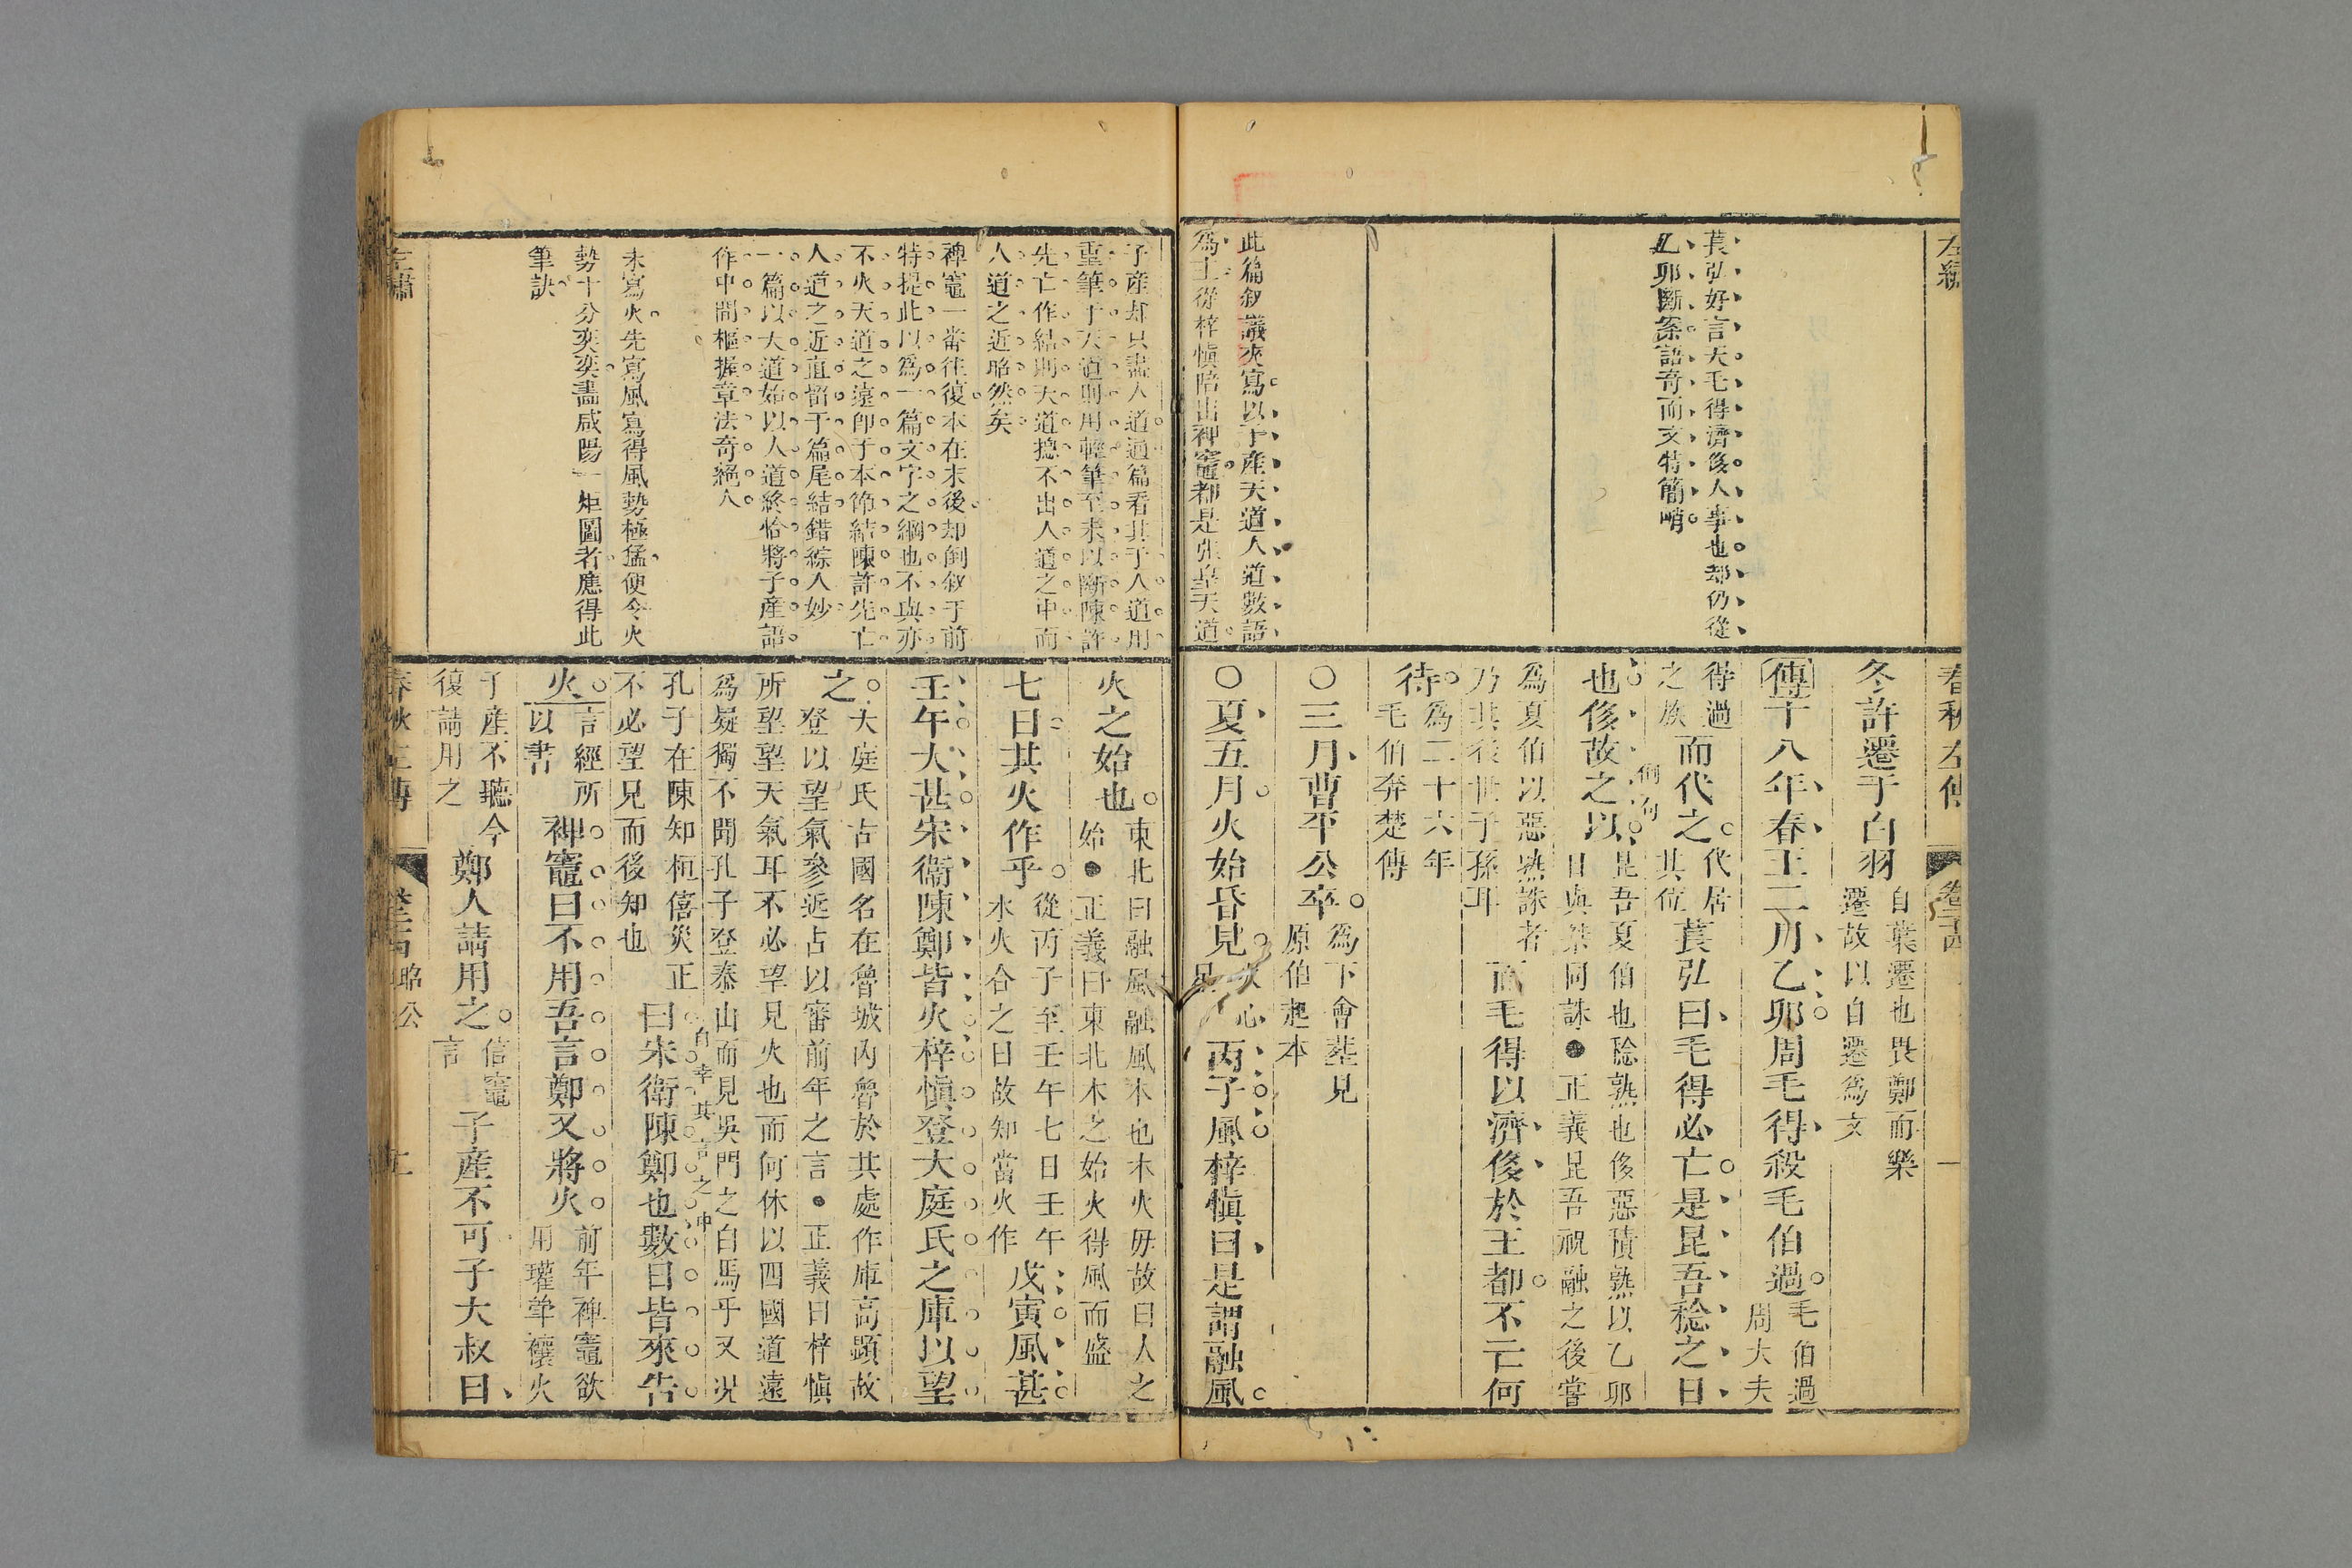 左繡
萇弘好言天毛得濟侈人事也却仍從
乙卯斷案語奇而文特簡峭
此篇敘議夾寫以子產天道人道數語
爲主從梓愼陪出裨竈都是張皇天道
春秋左傳
冬許遷于白羽
自葉遷也畏鄭而樂
遷故以自遷爲文
傳十八年春王二月乙卯周毛得殺毛伯過
毛伯過
周大夫
得過
之族
而代之
代居
其位
萇弘曰毛得必亡是昆吾稔之日
也侈故之以
倒句
昆吾夏伯也稔熟也侈惡積熟以乙卯
日與桀同誅●正義昆吾祝融之後嘗
爲夏伯以惡熟誅者
乃其後世子孫耳
而毛得以濟侈於王都不亡何
待
爲二十六年
毛伯奔楚傳
○三月曹平公卒
爲下會葬見
原伯起本
○夏五月火始昏見
火心
星
丙子風梓愼曰是謂融風
子產却只盡人道通篇看其于人道用
重筆于天道則用輕筆至末以斷陳許
先亡作結則天道摠不出人道之中而
人道之近昭然矣
裨竈一畨往復本在末後却倒敘于前
特提此以爲一篇文字之綱也不與亦
不火天道之遠卽于本節結陳許先亡
人道之近直留于篇尾結錯綜入妙
一篇以天道始以人道終恰將子產語
作中間樞握章法奇絕人
未寫火先寫風寫得風勢極猛便令火
勢十分奕奕畵咸陽一炬圖者應得此
筆訣
左繡
火之始也
東北曰融風融風木也木火毋故曰人之
始●正義曰東北木之始火得風而盛
七日其火作乎
從丙子至壬午七日壬午
水火合之日故知當火作
戊寅風甚
壬午大甚宋衞陳鄭皆火梓愼登大庭氏之庫以望
之
大庭氏古國名在魯城內魯於其處作庫高顯故
登以望氣參近占以審前年之言●正義曰梓愼
所望望天氣耳不必望見火也而何休以四國道遠
爲疑獨不聞孔子登泰山而見吳門之白馬乎又况
孔子在陳知桓僖災正
不必望見而後知也
自幸其言之中
曰宋衛陳鄭也數日皆來告
火
言經所
以書
裨竈曰不用吾言鄭又將火
前年裨竈欲
用瓘斝禳火
子產不聽今
復請用之
鄭人請用之
信竈
言
子產不可子大叔曰
昭公